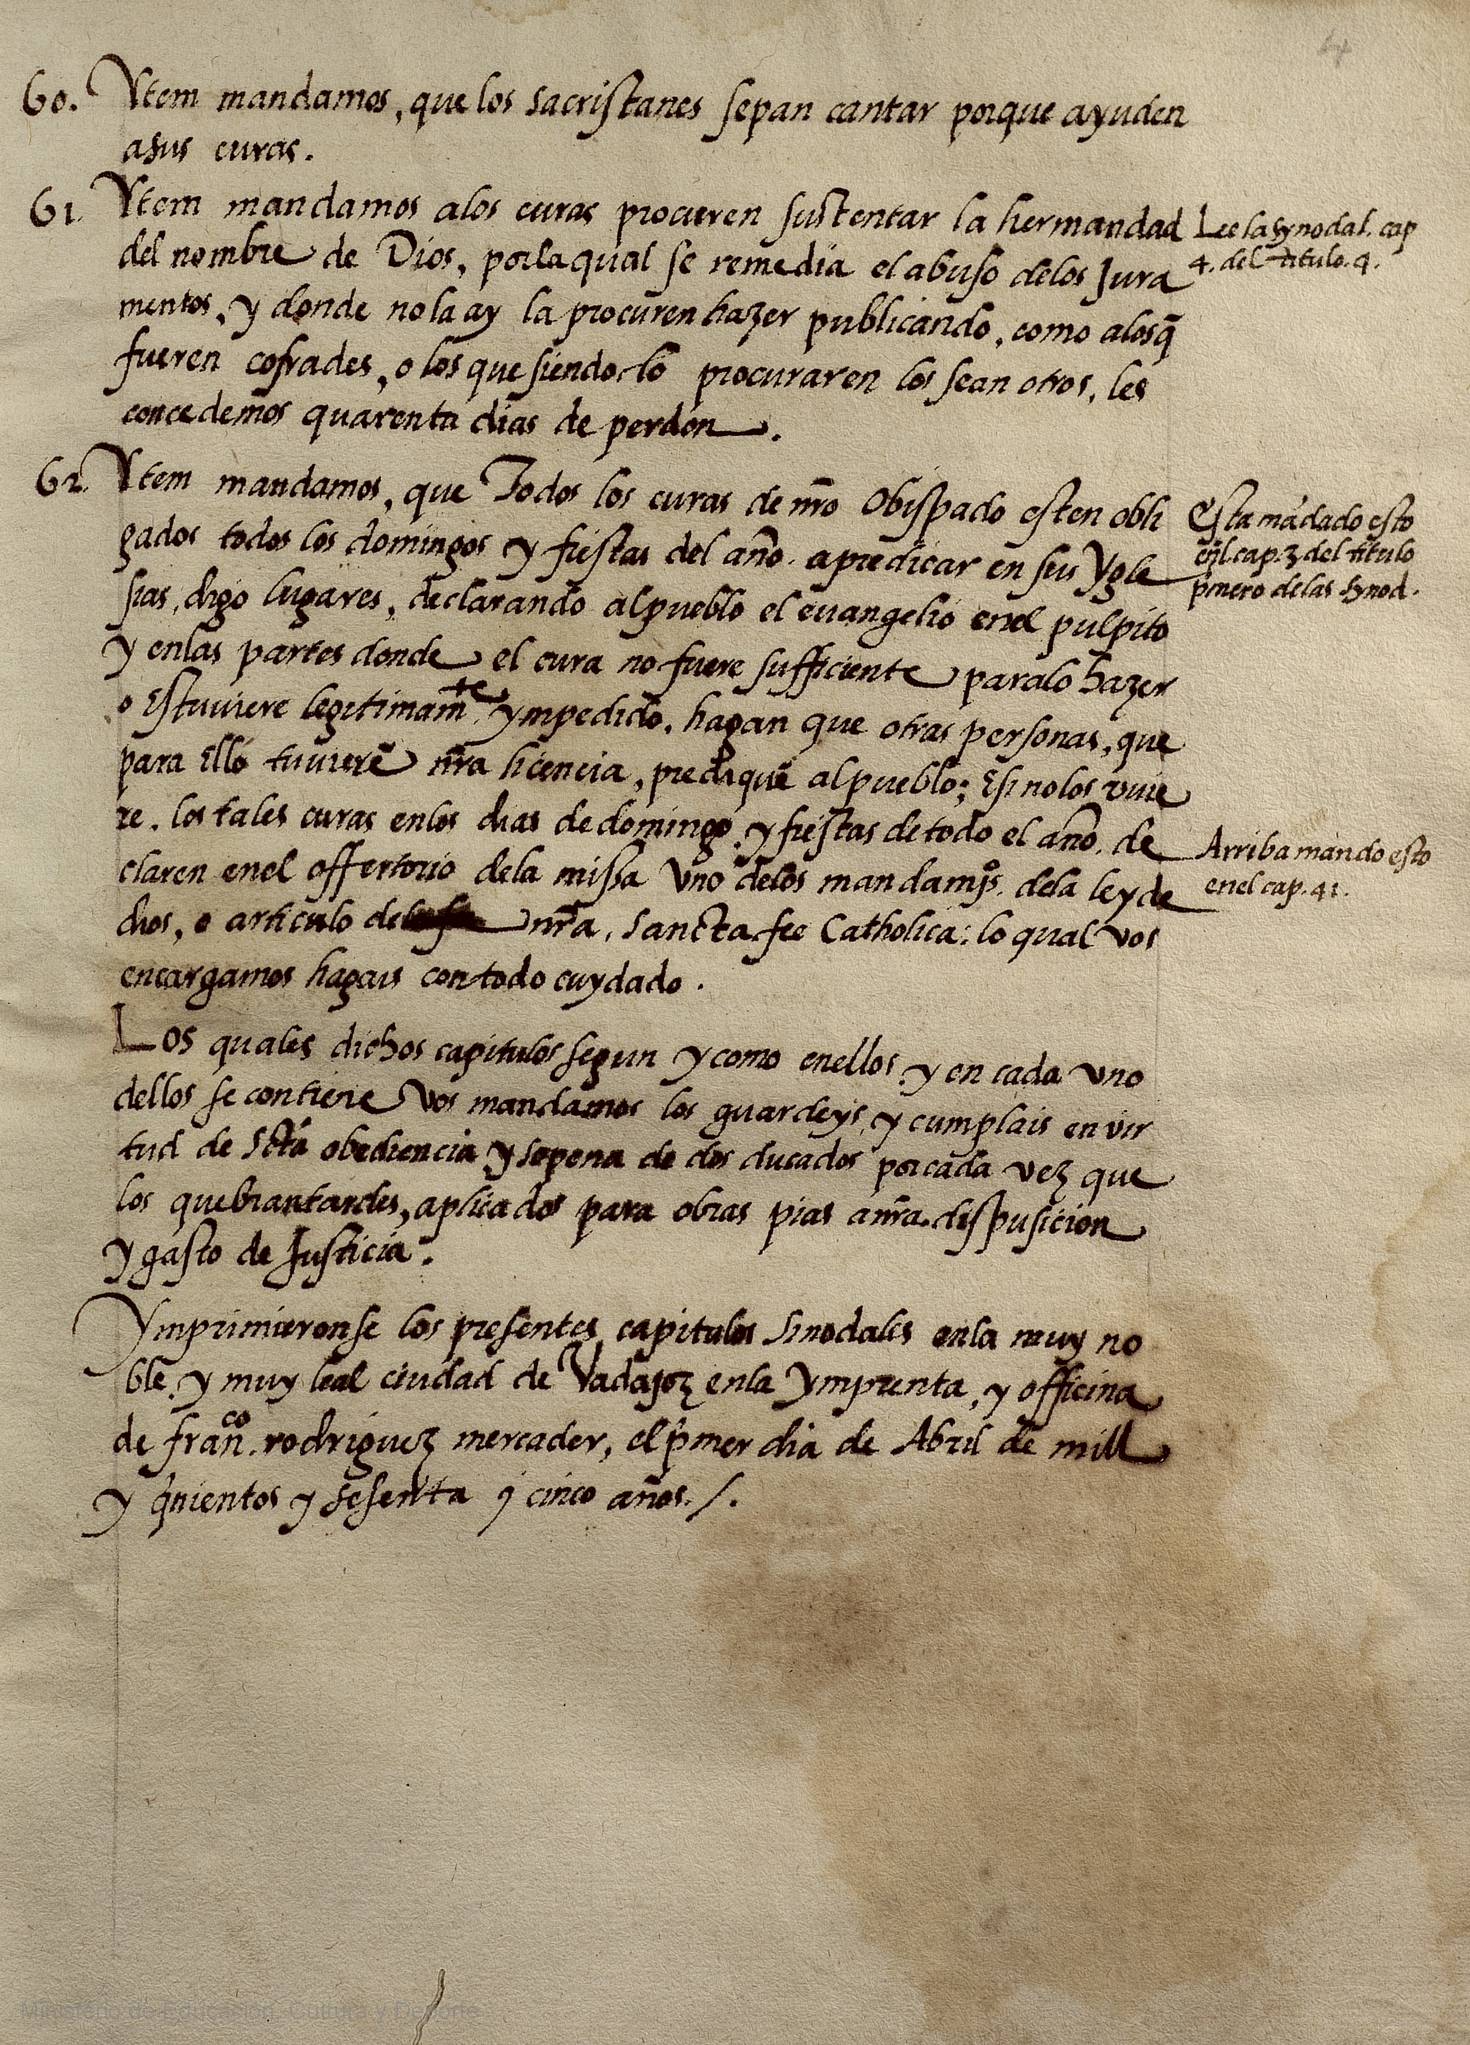 4
60. Ytem mandamos, que los sacristanes sepan cantar porque ayuden
asus curas.
61. Ytem mandamos alos curas procuren sustentar la hermandad
del nombre de Dios, porlaqual se remedia el abuso delos Jura
mentos, y donde nolaay la procuren hazer publicando, como alosq̃
fueren cofrades, o los que siendo-lo procuraren los sean otros, les
concedemos quarenta dias de perdon.
Lee la Synodal. cap
4. del titulo. 9.
62. Ytem mandamos, que Todos los curas de nr̃o Obispado esten obli
gados todos los domingos y fiestas del año. apredicar en sus Ygle
sias, digo lugares, declarando alpueblo el euangelio enel pulpito
y enlas partes donde el cura no fuere sufficiente paralo hazer
o Estuuiere legitimam̃te ympedido, hagan que otras personas, que
para Ello tuuierẽ nr̃a licencia, prediquẽ alpueblo; Esi nolos vuie
re. los tales curas enlos dias dedomingo, y fiestas detodo el año. de
claren enel offertorio dela missa Vno delos mandamos. dela leyde
dios, o articulo de nr̃a, sancta fee Catholica: lo qual vos
encargamos hagais contodo cuydado.
Esta mãdado esto
enl cap. 3 del titulo
pmero delas Synod.
Arriba mando esto
enel cap. 41.
Los quales dichos capitulos segun y como enellos y en cada vno
dellos se contiene Vos mandamos los guardeys y cumplais en vir
tud de Sctã obediencia y sopena de dos ducados por cada vez que
los quebrantardes, aplicados para obras pias anr̃a. dispusicion
y gasto de Justicia.
Ymprimieronse los presentes capitulos sinodales enla muy no
ble, y muy leal ciudad de Vadajoz enla Ymprenta, y officina
de franco. rodriguez mercader, el pmer dia de Abril de mill
y quientos y sesenta y cinco años./.
Ministerio de Educación, Cultura y Deporte